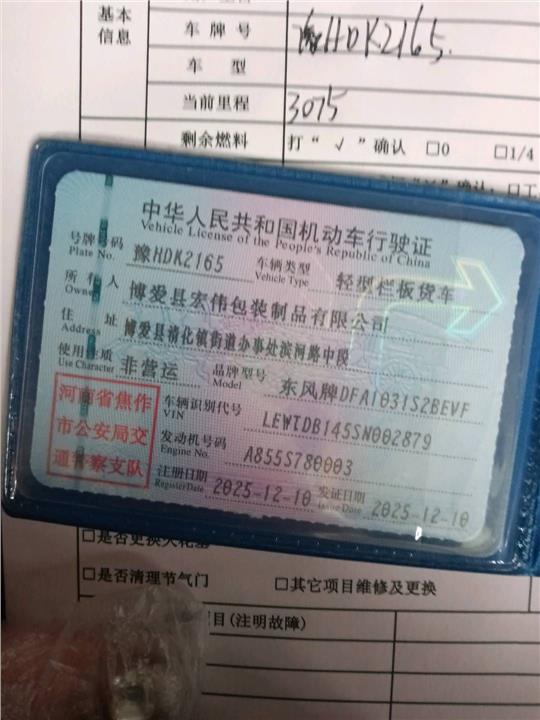 基本信息
车牌号 豫HDK2165.
车型
当前里程 3075
剩余燃料 打“√”确认 □0 □1/4
中华人民共和国机动车行驶证
Vehicle License of the People's Republic of China
号牌号码 豫HDK2165 车辆类型 轻型栏板货车
Plate No. Vehicle Type
所有人 博爱县宏伟包装制品有限公司
Owner
住址 博爱县清化镇街道办事处滨河路中段
Address
使用性质 非营运 品牌型号 东风牌DFA1031S2BEVF
Use Character Model
河南省焦作市公安局交通警察支队
车辆识别代号 LEWTDB145SN002879
VIN
发动机号码 A855S780003
Engine No.
注册日期 2025-12-10 发证日期 2025-12-10
Register Date Issue Date
□是否更换火花塞
□是否清理节气门 □其它项目维修及更换
项目(注明故障)